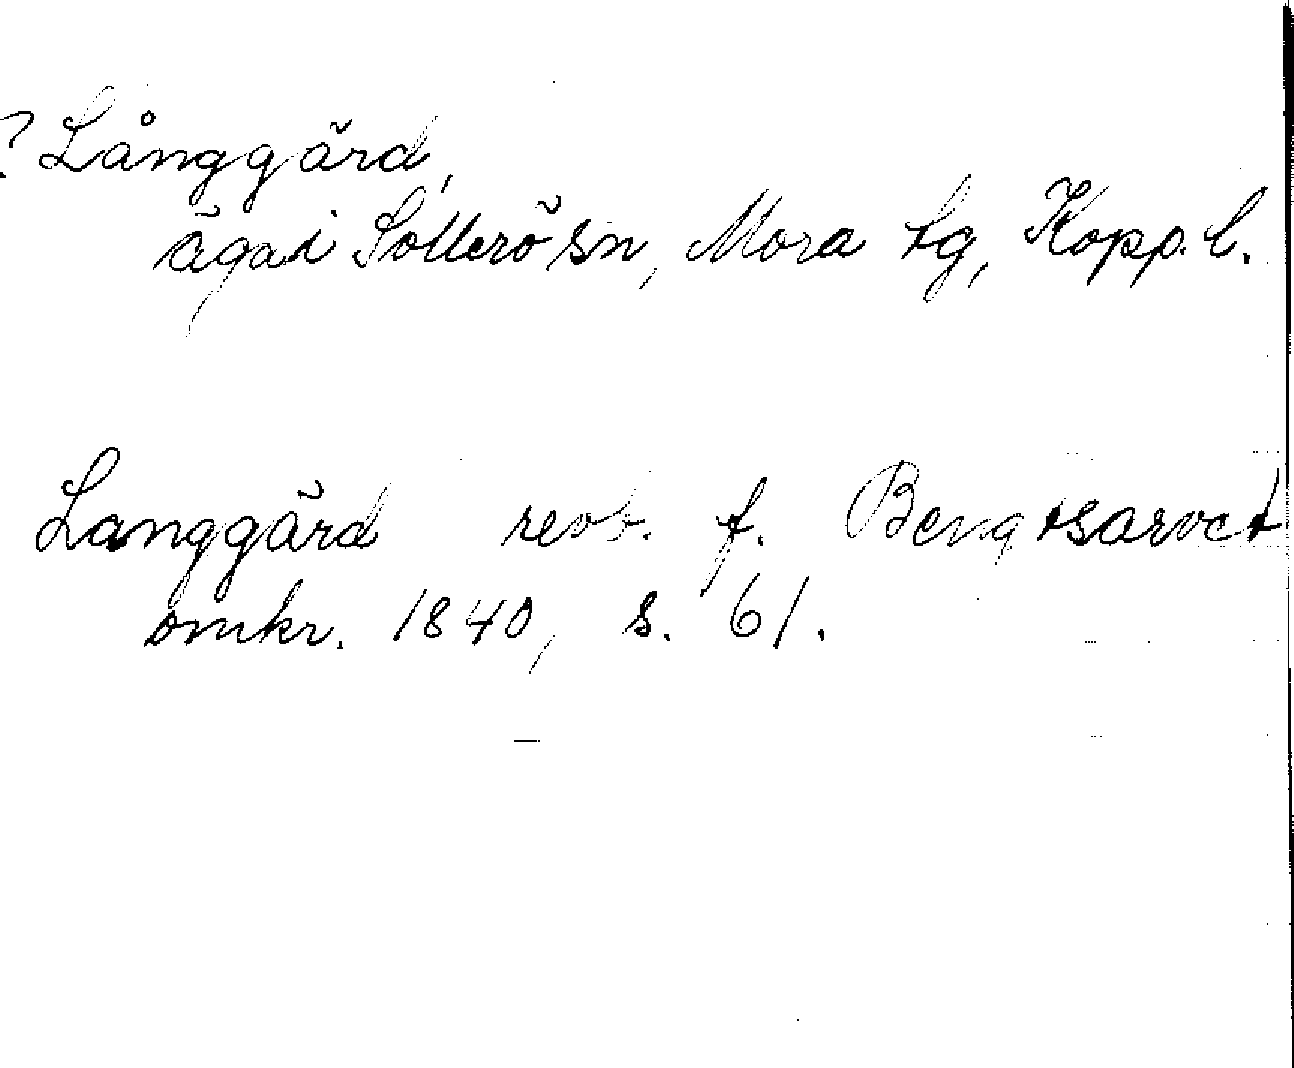 ? Långgärd,
äga i Sollerö sn, Mora tg, Kopp. l.
Langgärd revb. f. Bengtsarvet
omkr. 1840, s. 61.